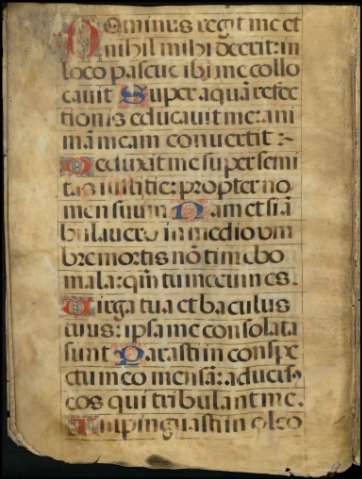 Dominus regit me et
nihil mihi deerit: in
loco pascue ibi me collo
cauit Super aquā refec
tionis educauit me: ani
mā meam conuertit :~
Deduxit me super semi
tas iustitie: propter no
men suum Nam et si ā
bulauero in medio vm
bre mortis nō timebo
mala: qm̄ tu mecum es.
Virga tua et baculus
tuus: ipsa me consolata
sunt Parasti in conspe
ctu meo mensā: aduers⁹
eos qui tribulant me.
Inpinguasti in oleo